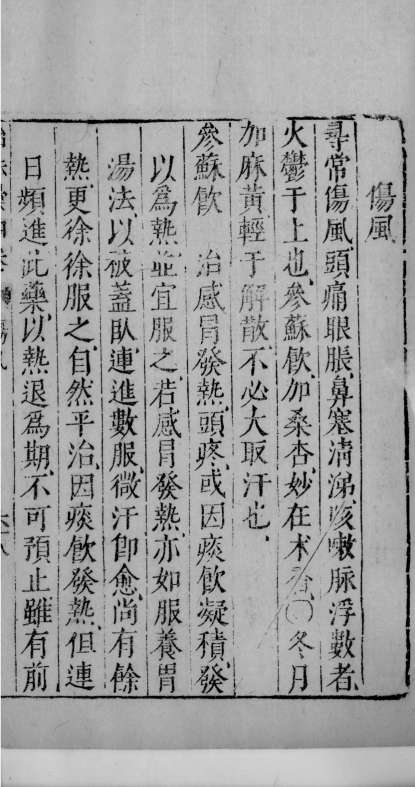 傷風
尋常傷風、頭痛眼脹、鼻塞清涕、咳嗽脈浮數者、
火鬱于上也、參蘇飲、加桑杏、妙在木香、○冬月
加麻黃、輕于解散、不必大取汗也、
參蘇飲　治感冒發熱、頭疼、或因痰飲凝積、發
以爲熱並宜服之、若感冒發熱、亦如服養胃
湯法、以被蓋臥連進數服、微汗卽愈、尚有餘
熱、更徐徐服之、自然平治、因痰飲發熱、但連
日頻進此藥、以熱退爲期、不可預止雖有前